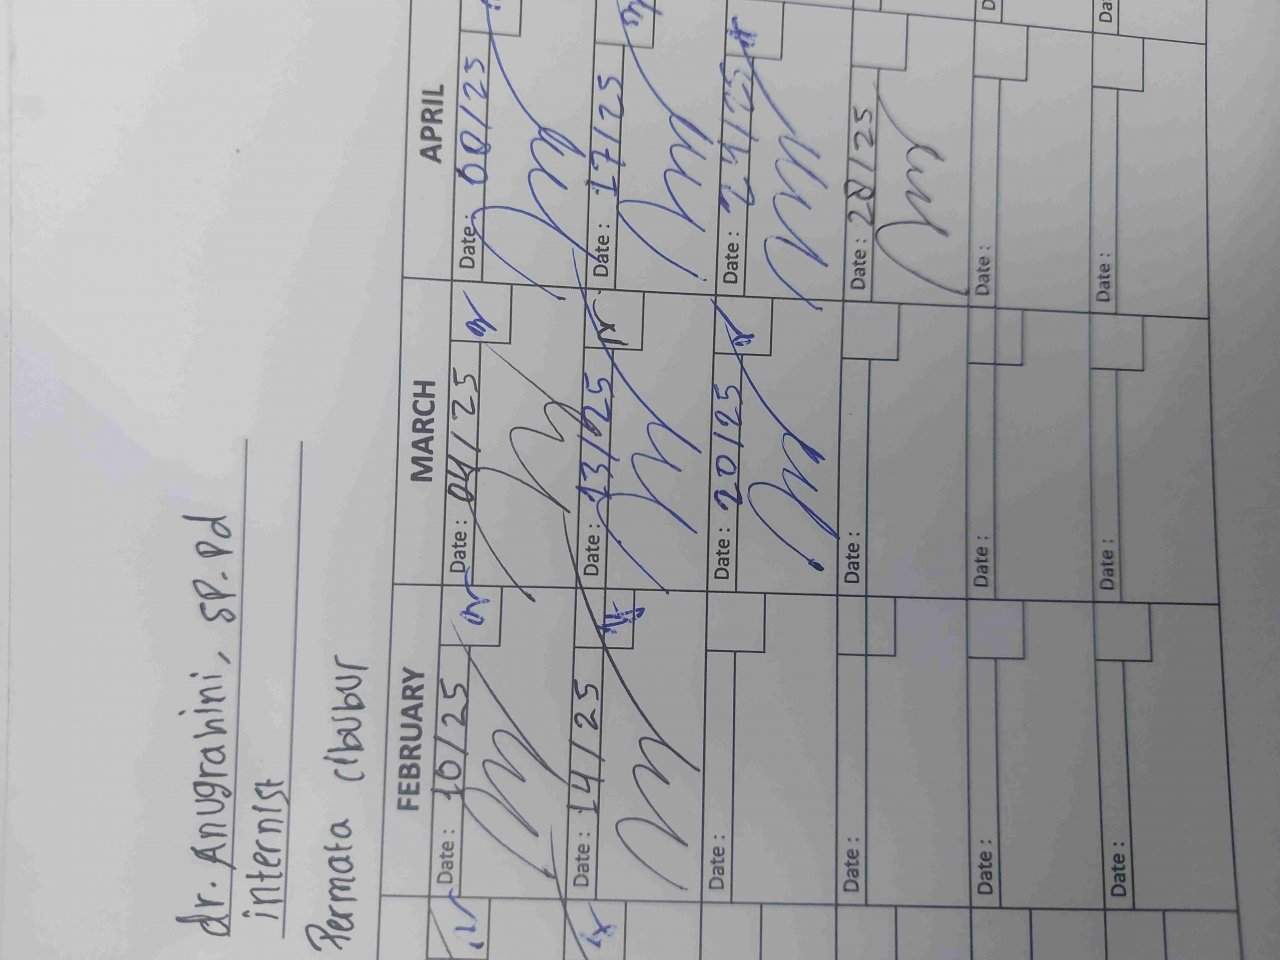 dr. Anugrahini, SP.Pd
internist
Permata cibubur
FEBRUARY MARCH APRIL
Date : 10/25 Date : 04/25 Date : 08/25
Date : 14/25 Date : 13/25 Date : 17/25
Date : Date : 20/25 Date : 24/25
Date : Date : Date : 28/25
Date : Date : Date :
Date : Date : Date :